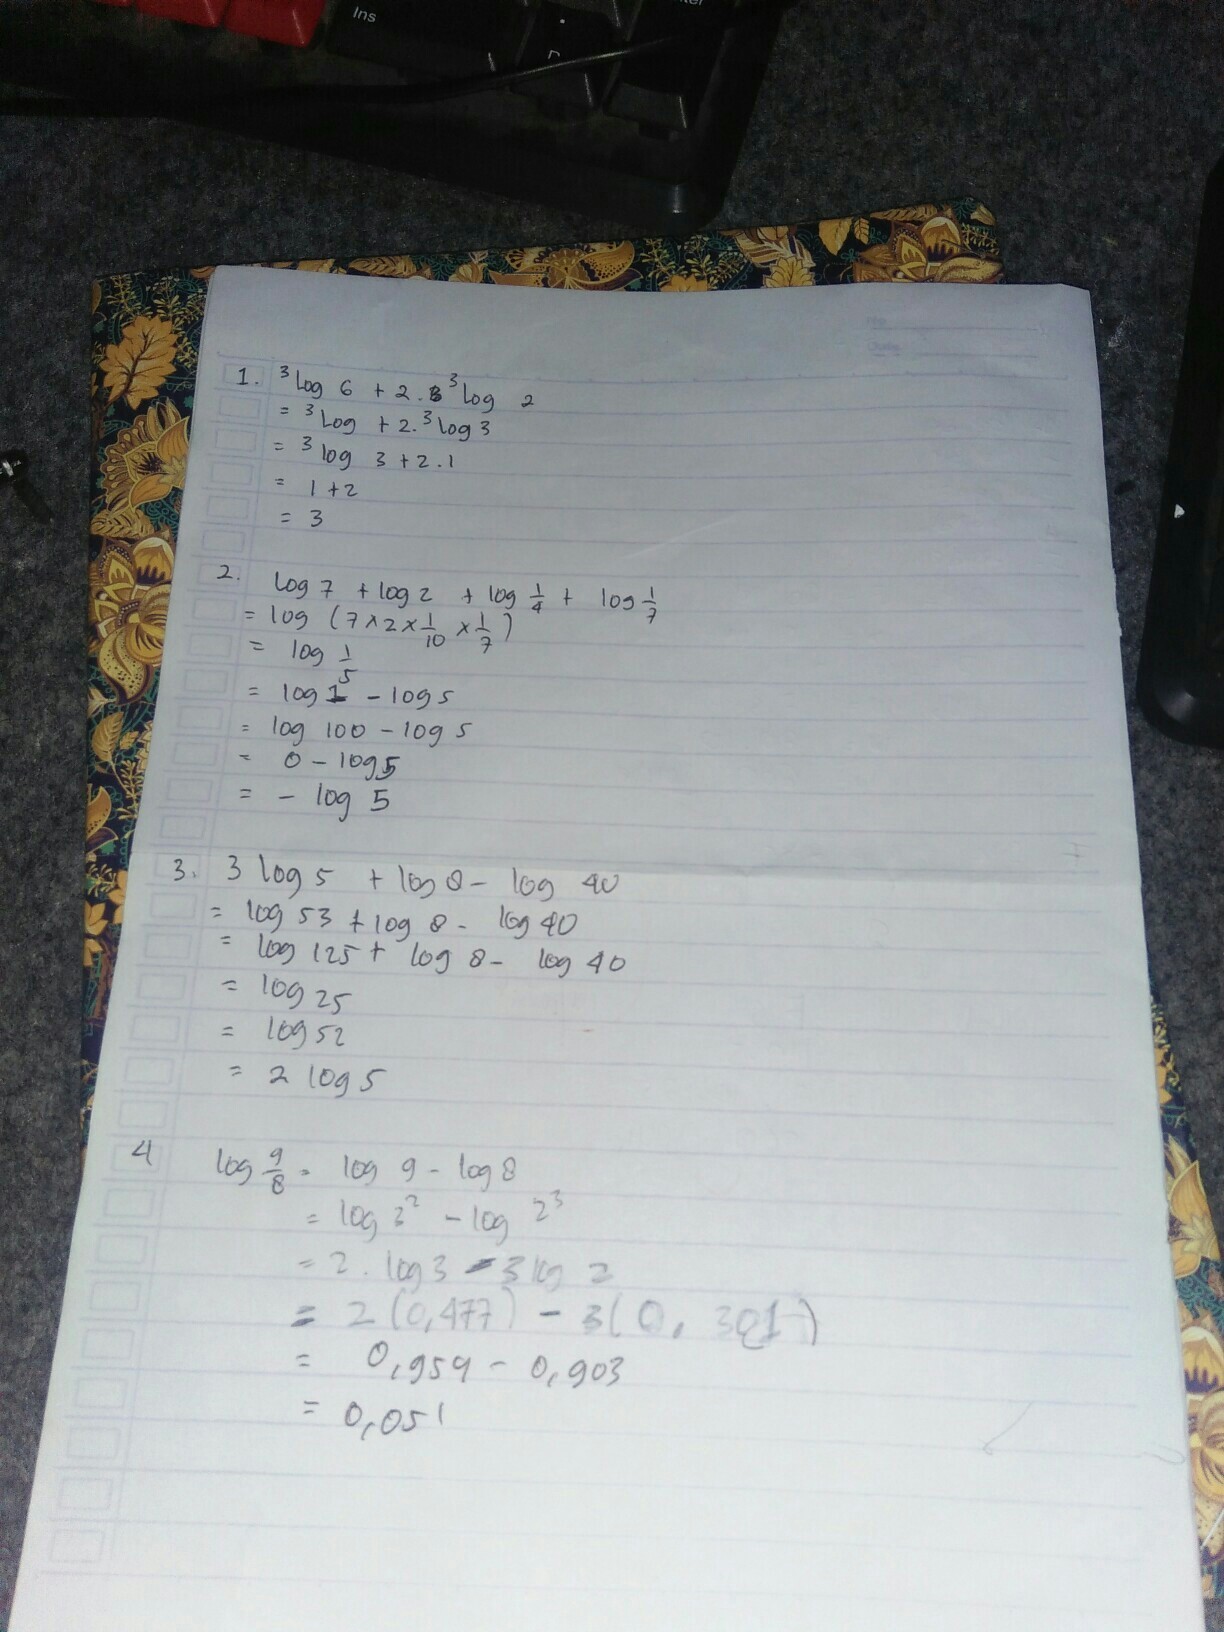 Ins
1. ³log 6 + 2. ³log 2
= ³Log + 2. ³log 3
= ³log 3 + 2. 1
= 1 + 2
= 3
2. Log 7 + log 2 + log 1/4 + log 1/7
= log (7 x 2 x 1/10 x 1/7)
= log 1/5
= log 1 - log 5
= log 100 - log 5
= 0 - log 5
= - log 5
3. 3 log 5 + log 8 - log 40
= log 53 + log 8 - log 40
= log 125 + log 8 - log 40
= log 25
= log 52
= 2 log 5
4 log 9/8 = log 9 - log 8
= log 3² - log 2³
= 2. log 3 - 3 log 2
= 2 (0,477) - 3 (0, 301)
= 0,954 - 0,903
= 0,051